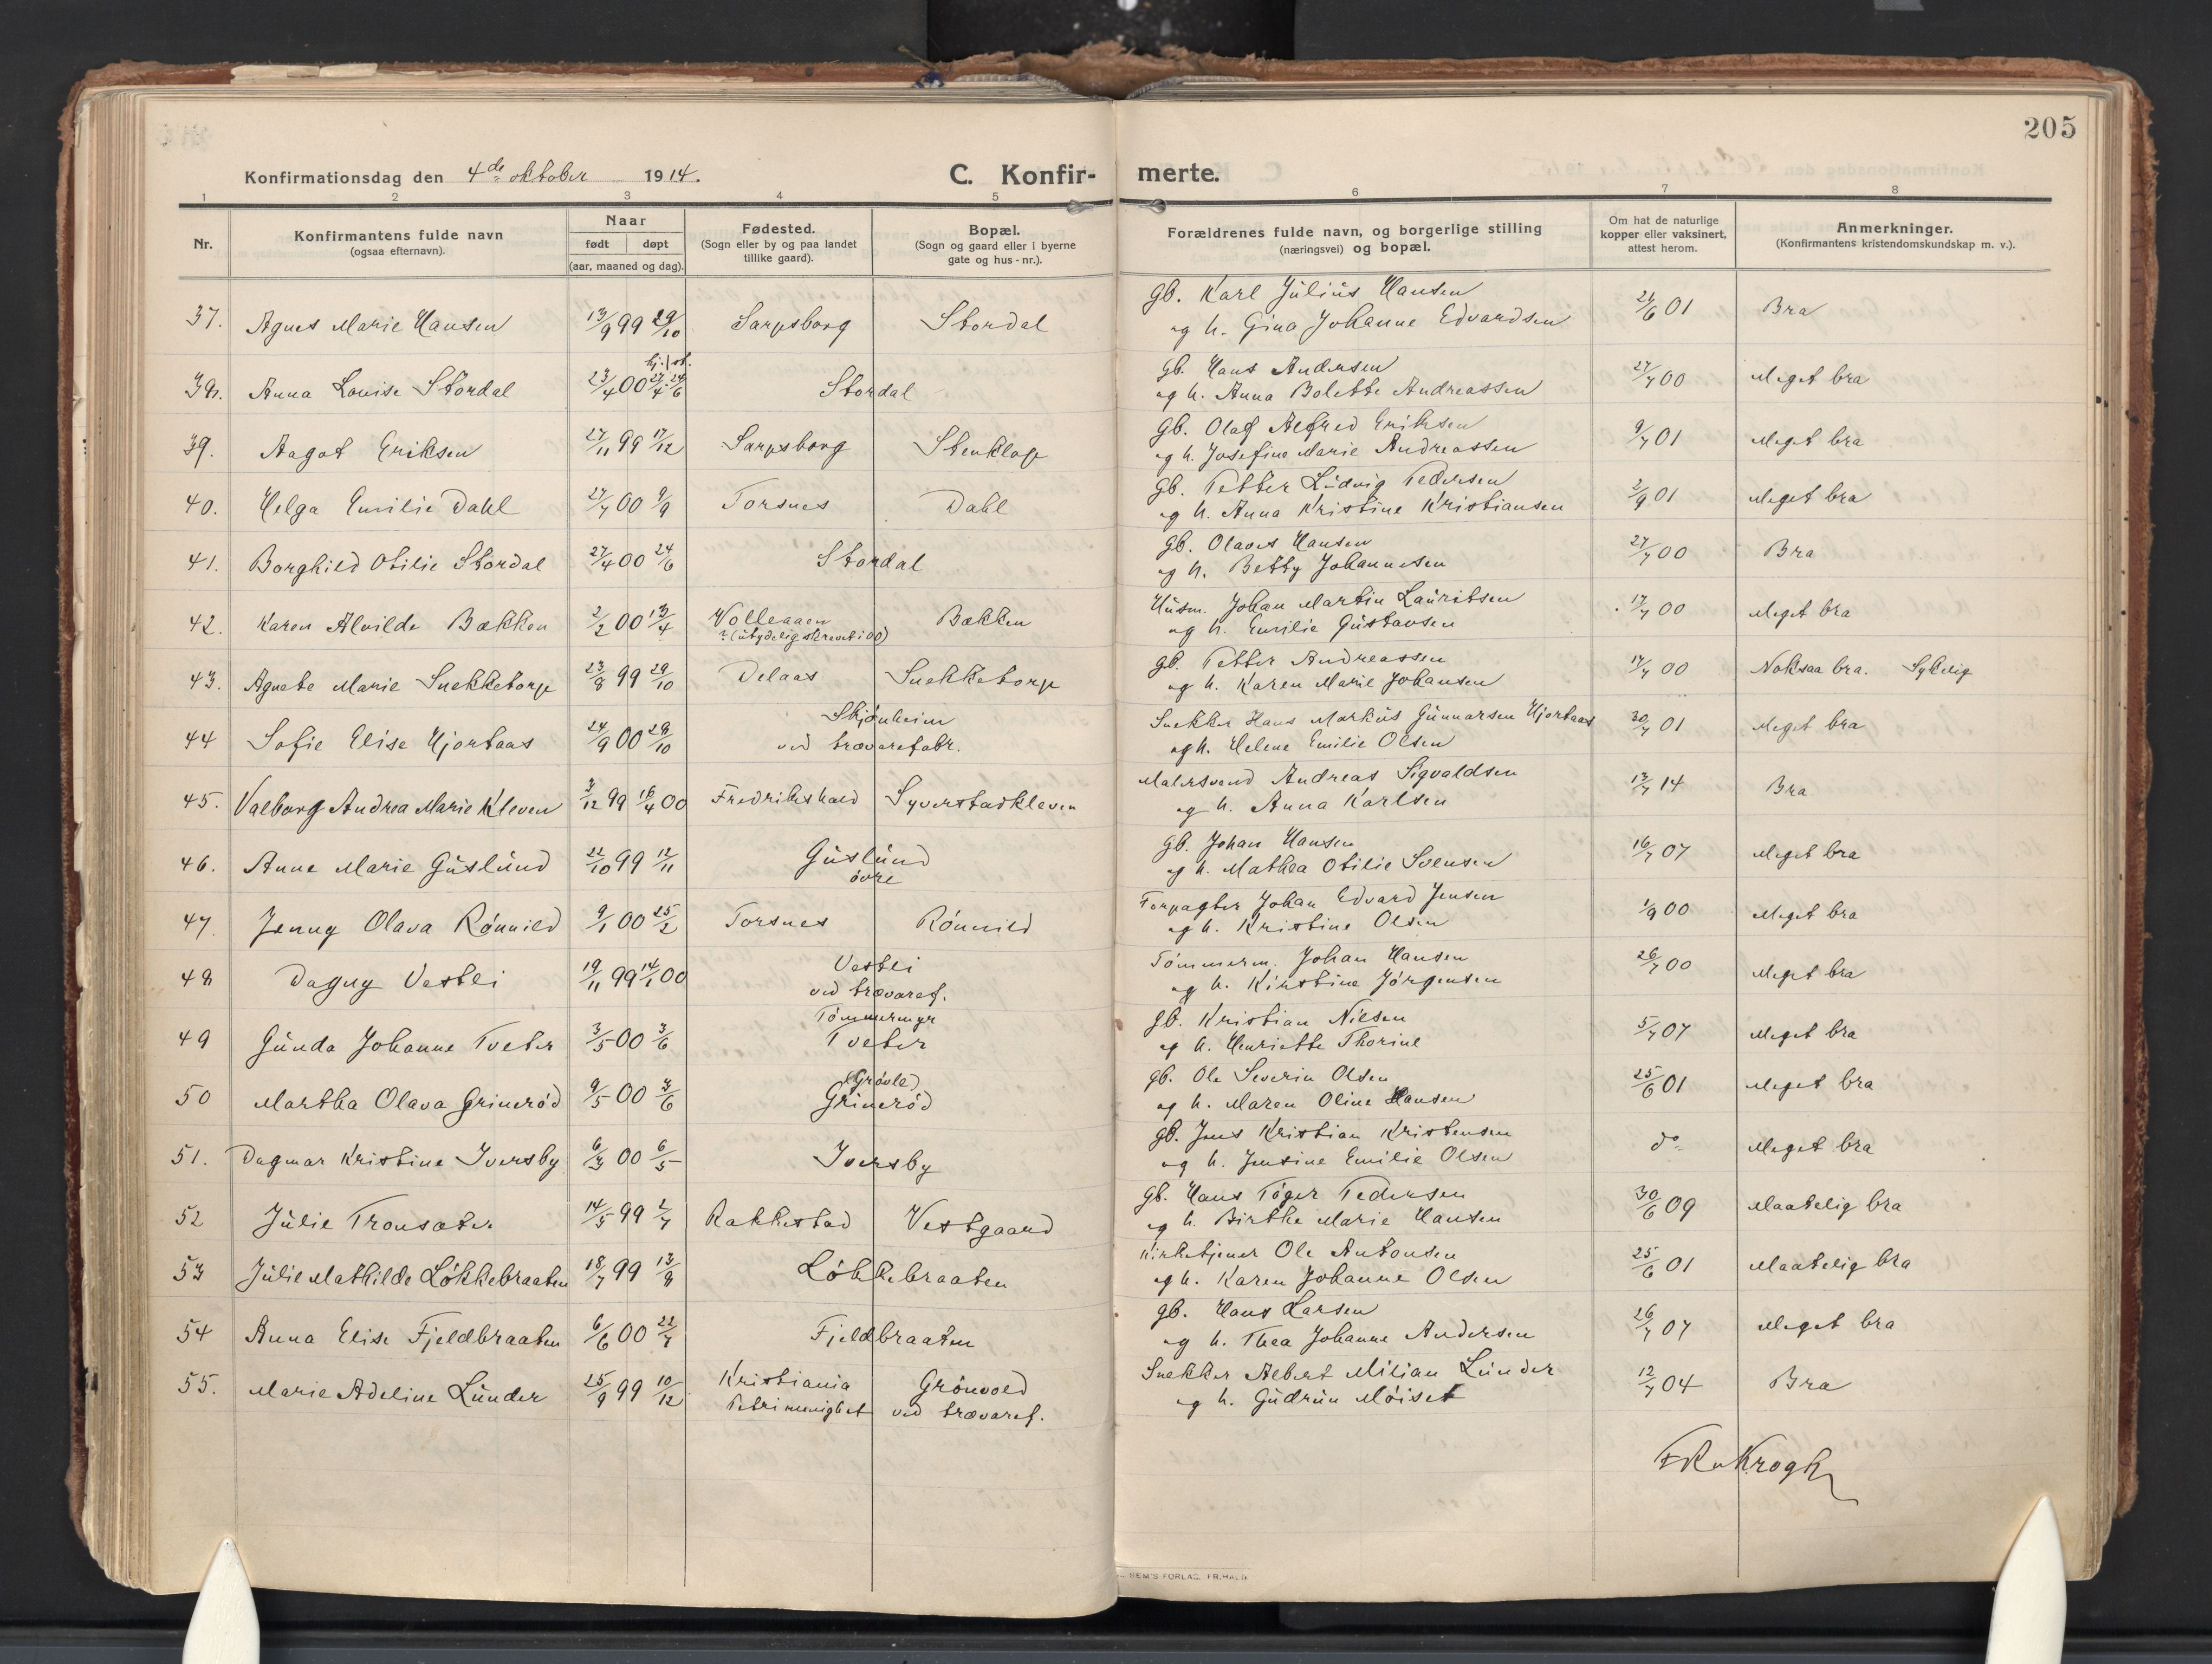 205
Konfirmationsdag den 4de oktober 1914. C. Konfir- merte.
1 2 3 4 5 6 7 8
Nr. Konfirmantens fulde navn (ogsaa efternavn). Naar født døpt (aar, maaned og dag). Fødested. (Sogn eller by og paa landet tillike gaard). Bopæl. (Sogn og gaard eller i byerne gate og hus-nr.). Forældrenes fulde navn, og borgerlige stilling (næringsvei) og bopæl. Om hat de naturlige kopper eller vaksinert, attest herom. Anmerkninger. (Konfirmantens kristendomskundskap m. v.).
gb. Karl Julius Hansen
37. Agnes Marie Hansen 13/9 99 29/10 Sarpsborg Stordal og h. Gina Johanne Edvardsen 21/6 01 Bra
hj. / st.
gb. Hans Andersen
38. Anna Louise Stordal 23/4 00 27/4 24/6 Stordal og h. Anna Bolette Andreassen 27/7 00 Meget bra
gb. Olaf Alfred Eriksen
39. Aagot Eriksen 27/11 99 17/12 Sarpsborg Stenklop og h. Josefine Marie Andreassen 9/7 01 Meget bra
gb. Petter Ludvig Pedersen
40. Helga Emilie Dahl 27/7 00 9/9 Torsnes Dahl og h. Anna Kristine Kristiansen 2/9 01 Meget bra
gb. Olaves Hansen
41. Borghild Otilie Stordal 27/4 00 24/6 Stordal og h. Betty Johannesen 27/7 00 Bra
Husm. Johan Martin Lauritsen
42. Karen Alvilde Bækken 2/2 00 13/4 Volleaaen Bækken og h. Emilie Gustavsen 17/7 00 Meget bra
? (utydelig skrevet i 00)
gb. Petter Andreassen
43. Agnete Marie Snekketorp 23/8 99 29/10 Delaas Snekketorp og h. Karen Marie Johansen 17/7 00 Noksaa bra. Sykelig
Skjønheim Snekker Hans Markus Gunnarsen Hjortaas
44 Sofie Elise Hjortaas 24/9 00 29/10 ved trævarefabr. og h. Helene Emilie Olsen 30/7 01 Meget bra
Malersvend Andreas Sigvaldsen
45. Valborg Andrea Marie Kleven 3/12 99 16/4 00 Fredrikshald Syverstadkleven og h. Anna Karlsen 13/7 14 Bra
Guslund gb. Johan Hansen
46. Anne Marie Guslund 22/10 99 12/11 øvre og h. Mathea Otilie Svensen 16/7 07 Meget bra
Forpagter Johan Edvard Jensen
47. Jenny Olava Rønnild 9/1 00 25/2 Torsnes Rønnild og h. Kristine Olsen 1/9 00 Meget bra
Vestli Tømmerm. Johan Hansen
48 Dagny Vestli 19/11 99 14/1 00 ved trævaref. og h. Kirstine Jørgensen 26/7 00 Meget bra
Tømmermyr gb. Kristian Nilsen
49 Gunda Johanne Tveter 3/5 00 3/6 Tveter og h. Henriette Thorine 5/7 07 Meget bra
(Grøvle) gb. Ole Severin Olsen
50 Martha Olava Grimerød 9/5 00 3/6 Grimerød og h. Maren Oline Hansen 25/6 01 Meget bra
gb. Jens Kristian Kristensen
51. Dagmar Kristine Iversby 6/3 00 6/5 Iversby og h. Jensine Emilie Olsen do Meget bra
gb. Hans Tøger Pedersen
52 Julie Tronsæter 14/5 99 2/7 Rakkestad Vestgaard og h. Birthe Marie Hansen 30/6 09 Maatelig bra
Kirketjener Ole Antonsen
53 Julie Mathilde Løkkebraaten 18/7 99 13/8 Løkkebraaten og h. Karen Johanne Olsen 25/6 01 Maatelig bra
gb. Hans Larsen
54 Anna Elise Fjeldbraaten 6/6 00 22/7 Fjeldbraaten og h. Thea Johanne Andersen 26/7 07 Meget bra
Kristiania Grønvold Snekker Albert Milian Lunder
55. Marie Adeline Lunder 25/9 99 10/12 Petri menighet ved trævaref. og h. Gudrun Møiset 12/7 04 Bra
Krogh
SEM'S FORLAG, FR.HALD.